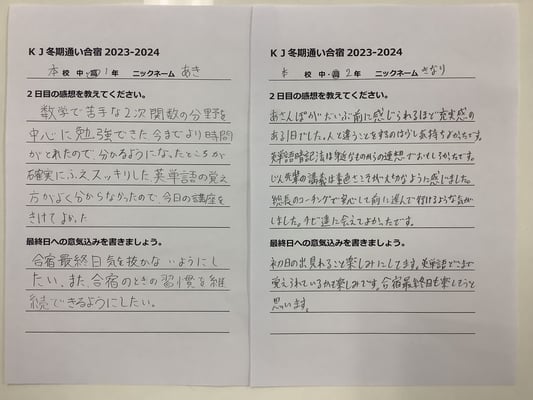 KJ冬期通い合宿 2023-2024
本 校 中・高 1 年 ニックネーム あき
2日目の感想を教えてください。
数学で苦手な2次関数の分野を
中心に勉強できた。今までより時間
がとれたので、分かるようになったところが
確実にふえスッキリした。英単語の覚え
方がよく分からなかったので、今日の講座を
きけてよかった
最終日への意気込みを書きましょう。
合宿最終日気を抜かないようにし
たい。また、合宿のときの習慣を継
続できるようにしたい。
KJ冬期通い合宿 2023-2024
本 校 中・高 2 年 ニックネーム さなり
2日目の感想を教えてください。
あさんぽがだいぶ前に感じられるほど充実感の
ある1日でした。人と違うことをするのは少し気持ちよかったです。
英単語暗記法は身近なものからの連想でおもしろかったです。
先輩の講義は景色こそが大切なように感じました。
コーチングで安心して前に進んで行けるような気が
しました。チビ達に会えてよかったです。
最終日への意気込みを書きましょう。
初日の出見れること楽しみにしてます。英単語どこまで
覚えられているかも楽しみです。合宿最終日も楽しもうと
思います。